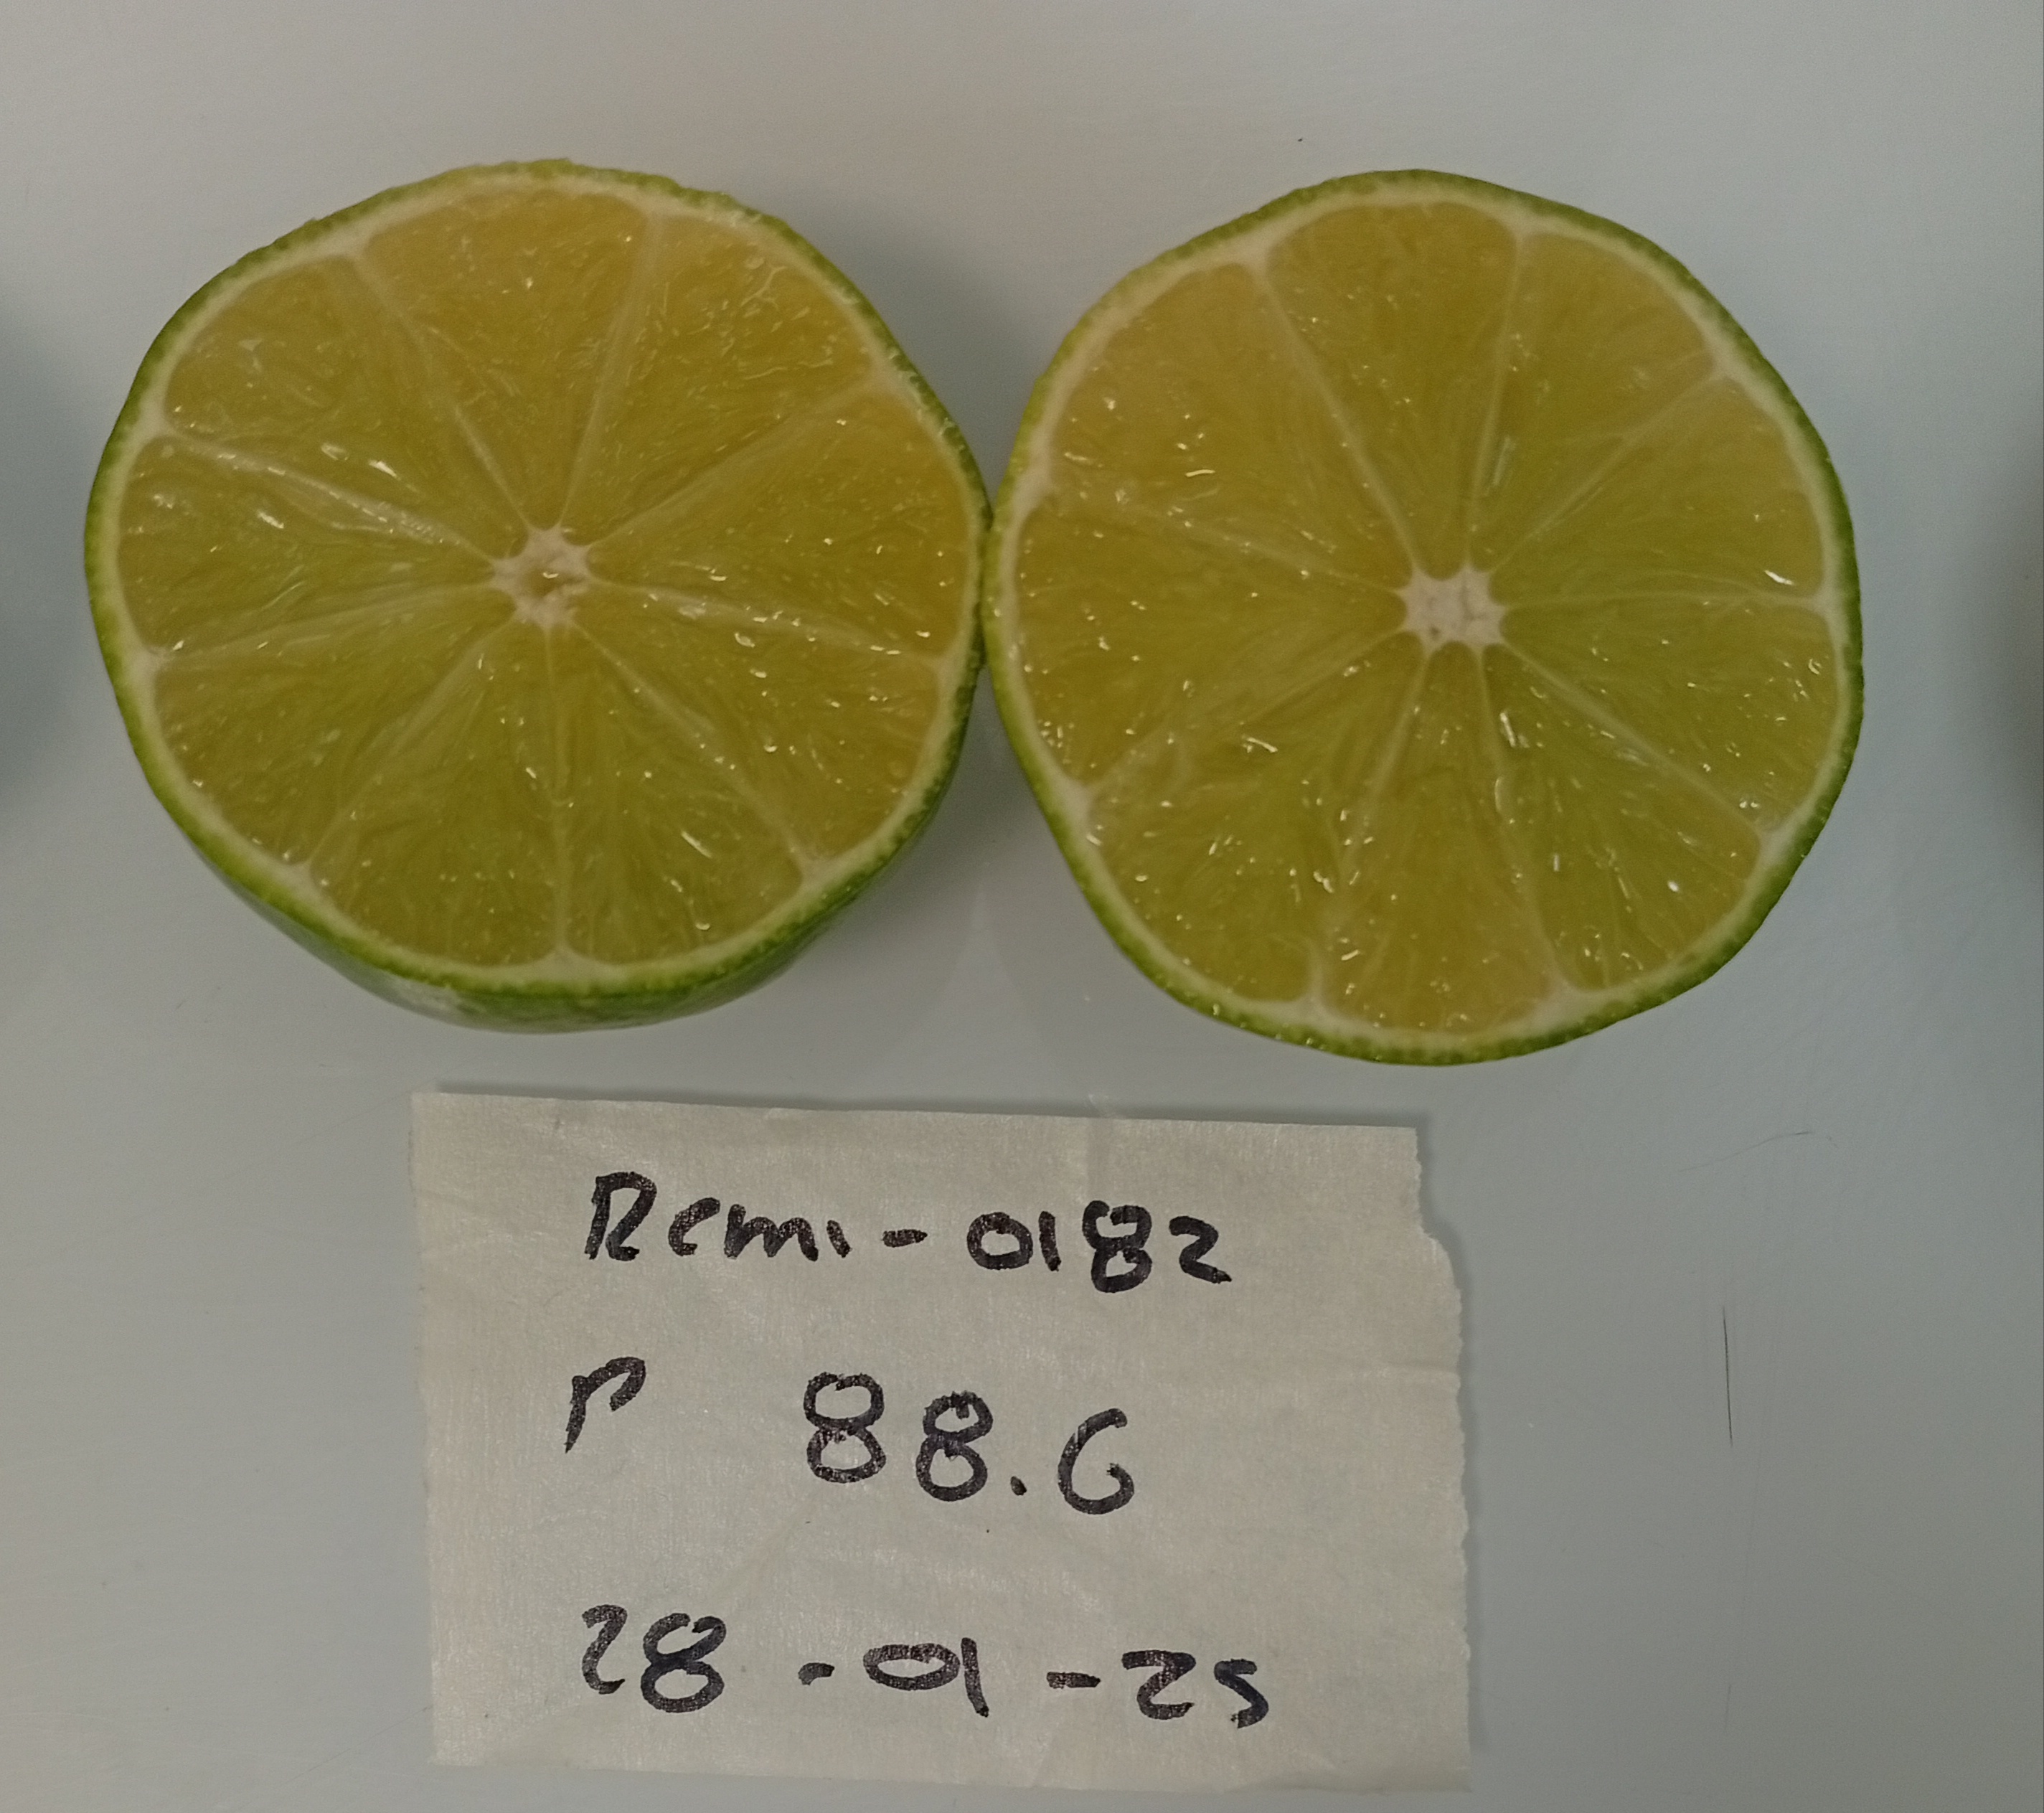 Remi-0182
P 88.6
28-01-25